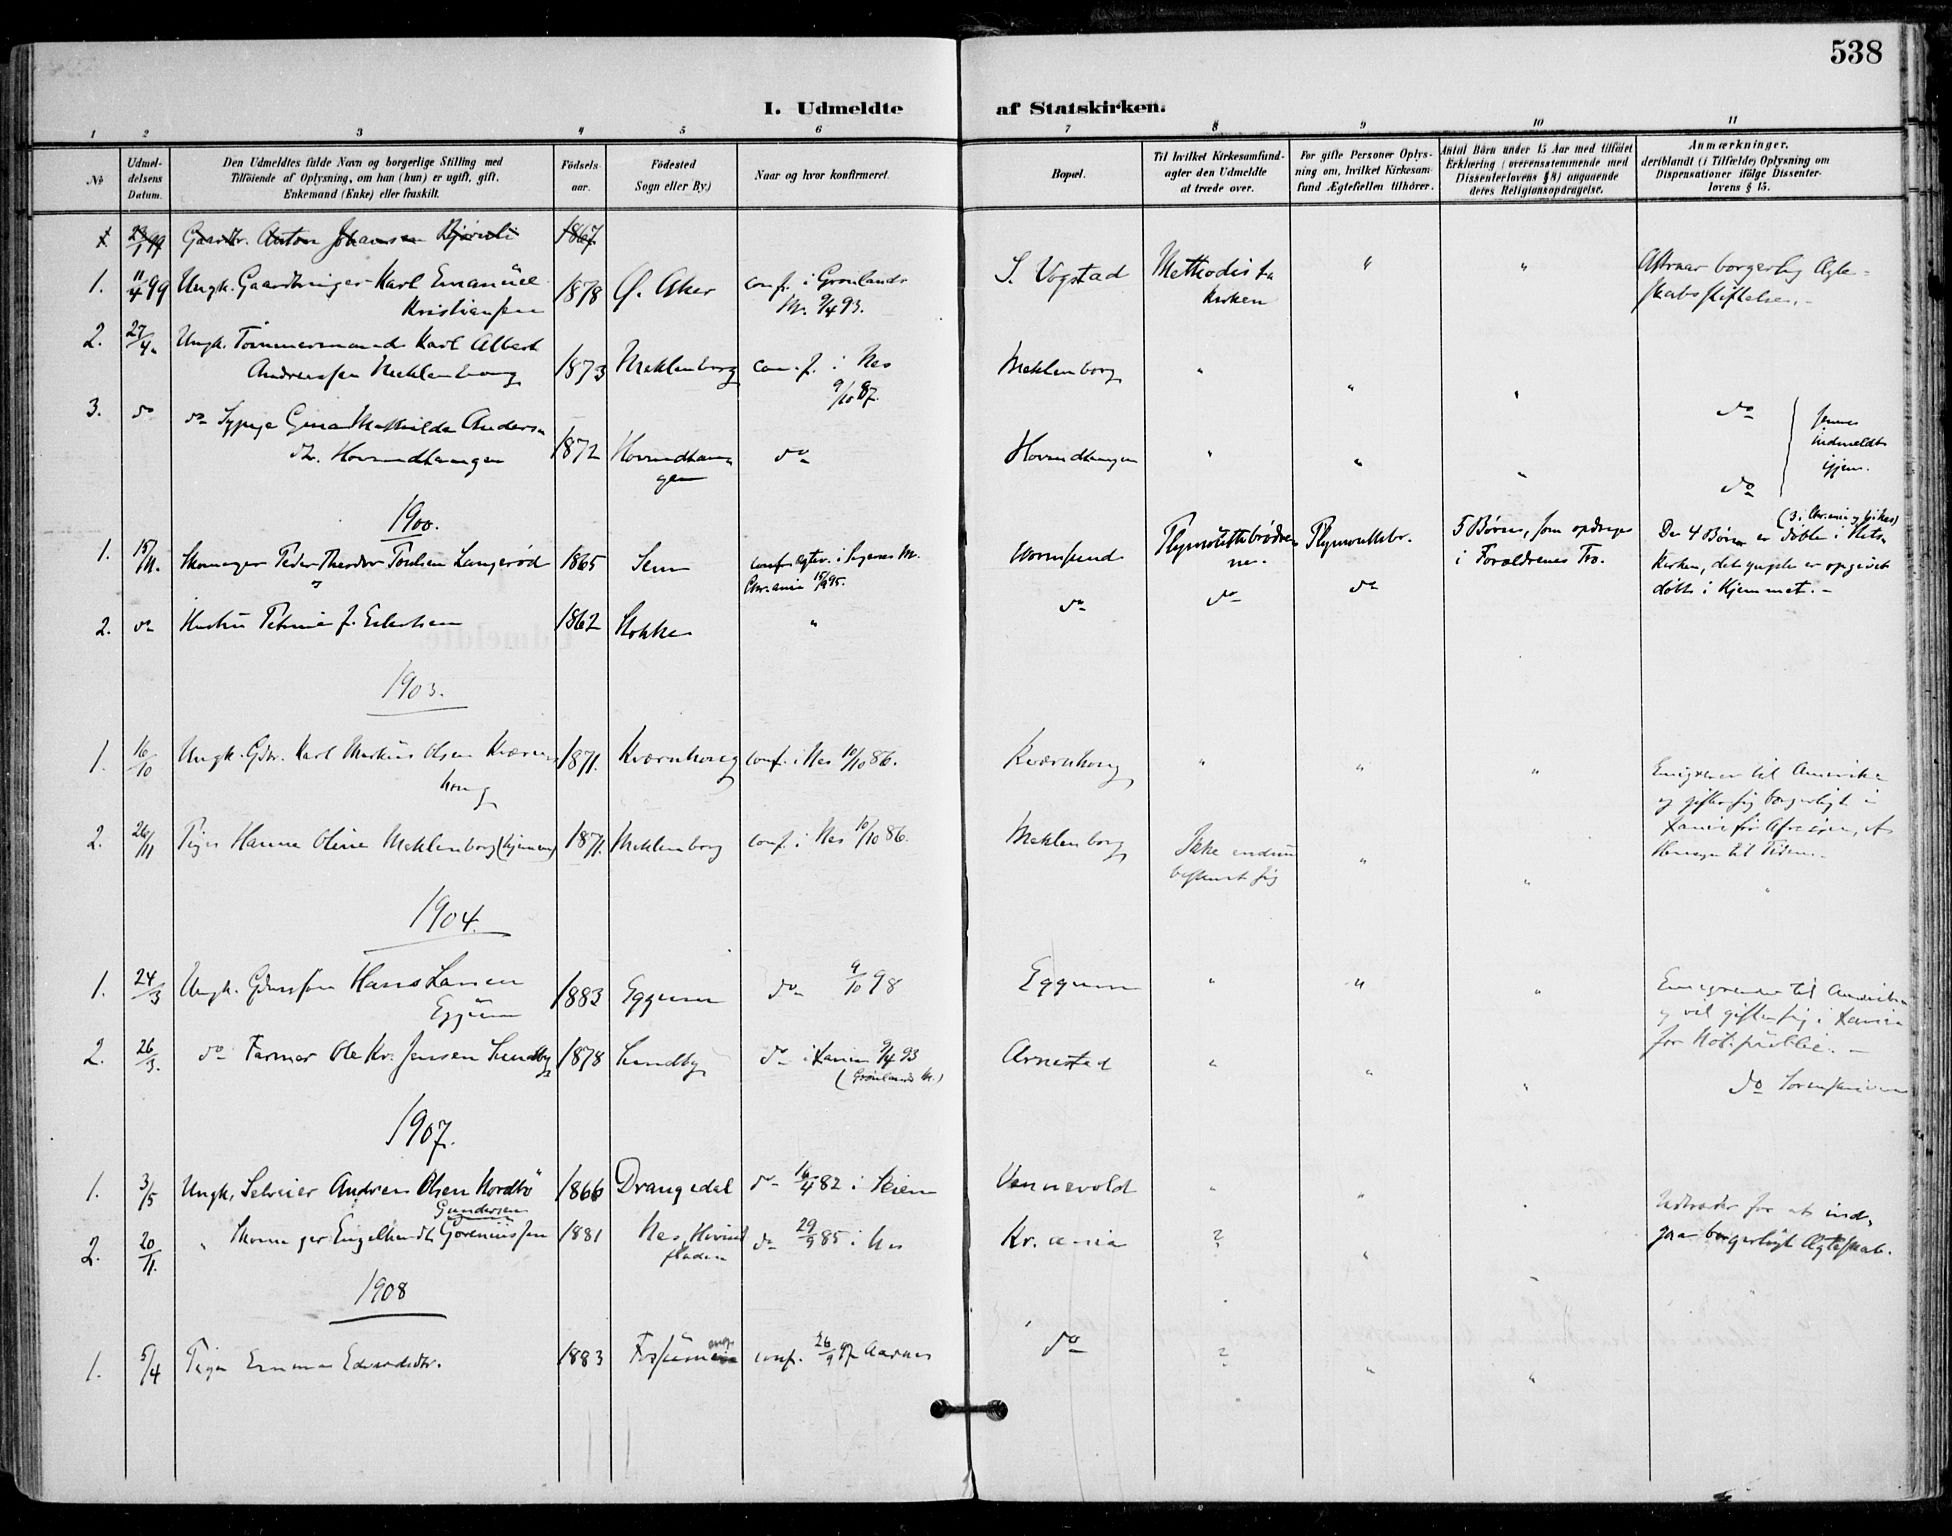 538
I. Udmeldte af Statskirken.
1 2 3 4 5 6 7 8 9 10 11
No
Udmeldelsens Datum.
Den Udmeldtes fulde Navn og borgerlige Stilling med
Tilföiende af Oplysning, om han (hun) er ugift, gift,
Enkemand (Enke) eller fraskilt.
Födselsaar.
Födested
Sogn eller By)
Naar og hvor konfirmeret.
Bopæl.
Til hvilket Kirkesamfund
agter den Udmeldte
at træde over.
For gifte Personer Oplys-
ning om, hvilket Kirkesam-
fund Ægtefællen tilhörer.
Antal Börn under 15 Aar med tilföiet
Erklæring (overensstemmende med
Dissenterlovens § 8) angaaende
deres Religionsopdragelse.
Anmærkninger,
deriblandt (i Tilfælde) Oplysning om
Dispensationer ifölge Dissenter-
lovens § 15.
1 23/1 99 Gaardbr. Anton Johansen 1867
1. 11/4 99 Ungk. Gaardbruger Karl Emanuel
Kristiansen 1878 Ø. Aker conf. i Grønlands
M. 9/4 93. S. Vogstad Methodist-
kirken " " borgerlig Ægte-
skabsstiftelse.-
2. 27/4. Ungk. Tømmermand Karl Albert
Andreassen Meklenborg 1873 Meklenborg conf. i Nes
9/10 87. Meklenborg " " " do
3. do do Sypige Gina Mathilde Anders-
dtr. Hovindhaugen 1872 Hovindhaugen do Hovindhaugen " " " do
Indmeldte
igjen.
1900.
1. 15/11. Skomager Peder Theodor Poulsen Langerød 1865 Sem conf. i Jagers M.
Chr.ania 15/4 95. Vormsund Plymouthbrødrene. Plymouthbr. 5 Børn, som opdrages
i Forældrenes Tro. De 4 Børn er døbte i Stats-
Kirken, det yngste er opgivet
døbt i Hjemmet.-
2. do Hustru Petrine f. 1862 Stokke " do do do
1903.
1. 16/10 Ungk. Gbr. Karl Markus Olsen Kværn-
houg 1871. Kværnhoug conf. i Nes 10/10 86. Kværnhoug " " " Emigrerer til Amerika
og gifter sig borgerligt i
Xania før Afreisen, af
Hensyn til Tiden.-
2. 26/11 Pige Hanne Oline Meklenborg 1871. Meklenborg conf. i Nes 10/10 86. Meklenborg Ikke endnu
bestemt sig " " "
1904.
1. 24/3 Ungk. Hans Larsen
Eggum 1883 Eggum do 9/10 98 Eggum " " " Emigrerer til Amerika
og vil gifte sig i Xania
for Not. publ.-
2. 26/3. do Farmer Ole Kr. Jensen Sundby 1878 Sundby do i Xania 9/4 93
(Grønlands M.) Arnestad " " " do
1907.
1. 3/5 Ungk. Andreas Olsen Nordbø 1866 Drangedal do 16/4 82 i Skien Vennevold " " " Udtræder for at ind-
gaa borgerligt Ægteskab.
Gundersen
2. 20/11. " Skomager Engelhardt 1881 Nes, do 29/9 85 i Nes Kr.ania ? " "
1908
1. 5/4 Pige Emma Edvardsdtr. 1883 conf. 26/9 97 Aarnes do ? " "